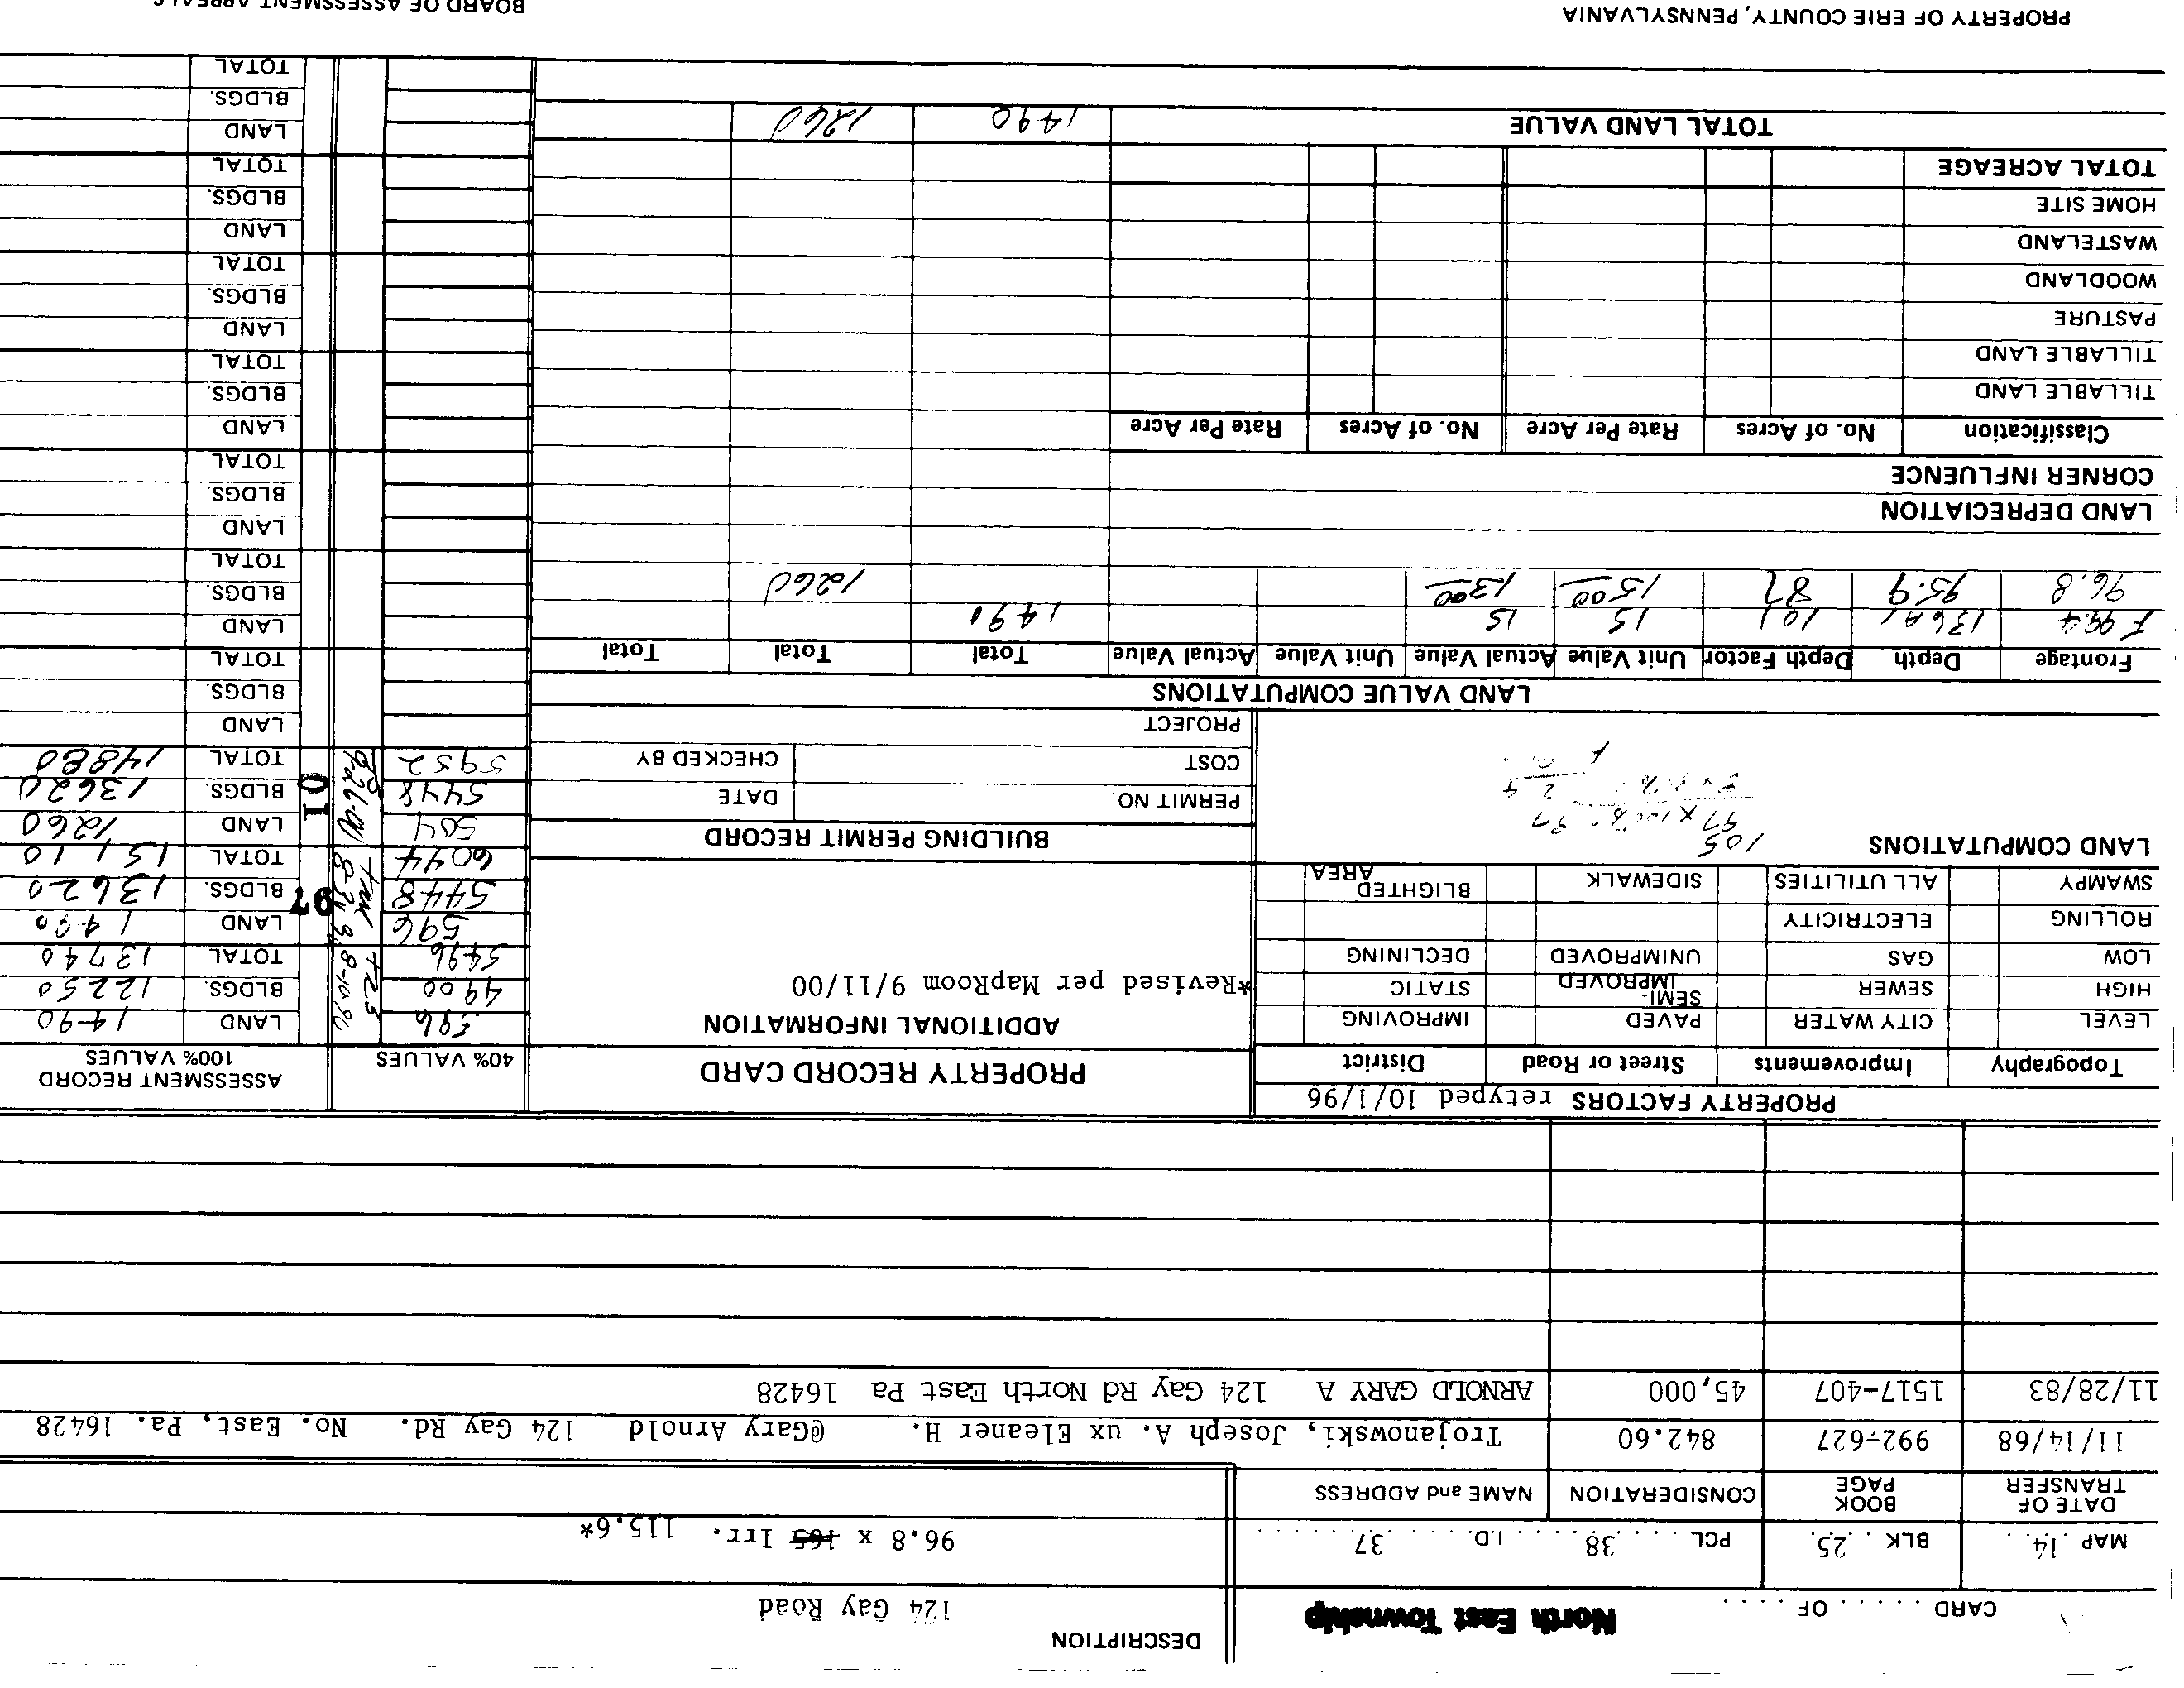 CARD ..... OF .....
North East Township
DESCRIPTION
124 Gay Road
MAP 14 BLK 25 PCL 38 I.D. 37
96.8 x 165 Irr. 115.6*
DATE OF TRANSFER BOOK PAGE CONSIDERATION NAME and ADDRESS
11/14/68 992-627 842.60 Trojanowski, Joseph A. ux Eleaner H. @Gary Arnold 124 Gay Rd. No. East, Pa. 16428
11/28/83 1517-407 45,000 ARNOLD GARY A 124 Gay Rd North East Pa 16428
PROPERTY FACTORS retyped 10/1/96
Topography Improvements Street or Road District
LEVEL CITY WATER PAVED IMPROVING
HIGH SEWER SEMI-IMPROVED STATIC
LOW GAS UNIMPROVED DECLINING
ROLLING ELECTRICITY
SWAMPY ALL UTILITIES SIDEWALK BLIGHTED AREA
LAND COMPUTATIONS
105
PROPERTY RECORD CARD
ADDITIONAL INFORMATION
*Revised per MapRoom 9/11/00
BUILDING PERMIT RECORD
PERMIT NO. DATE
COST CHECKED BY
PROJECT
40% VALUES ASSESSMENT RECORD 100% VALUES
596 LAND 1490
4900 BLDGS. 12250
5496 TOTAL 13740
596 97 LAND 1490
5448 BLDGS. 13620
6044 TOTAL 15110
504 01 LAND 1260
5448 BLDGS. 13620
5952 TOTAL 14880
LAND
BLDGS.
TOTAL
LAND
BLDGS.
TOTAL
LAND
BLDGS.
TOTAL
LAND
BLDGS.
TOTAL
LAND
BLDGS.
TOTAL
LAND
BLDGS.
TOTAL
LAND
BLDGS.
TOTAL
LAND VALUE COMPUTATIONS
Frontage Depth Depth Factor Unit Value Actual Value Unit Value Actual Value Total Total Total
99.4 101 15 15 1490
96.8 95.9 87 15.00 13.00 1260
LAND DEPRECIATION
CORNER INFLUENCE
Classification No. of Acres Rate Per Acre No. of Acres Rate Per Acre
TILLABLE LAND
TILLABLE LAND
PASTURE
WOODLAND
WASTELAND
HOME SITE
TOTAL ACREAGE
TOTAL LAND VALUE 1490 1260
PROPERTY OF ERIE COUNTY, PENNSYLVANIA
BOARD OF ASSESSMENT APPEALS